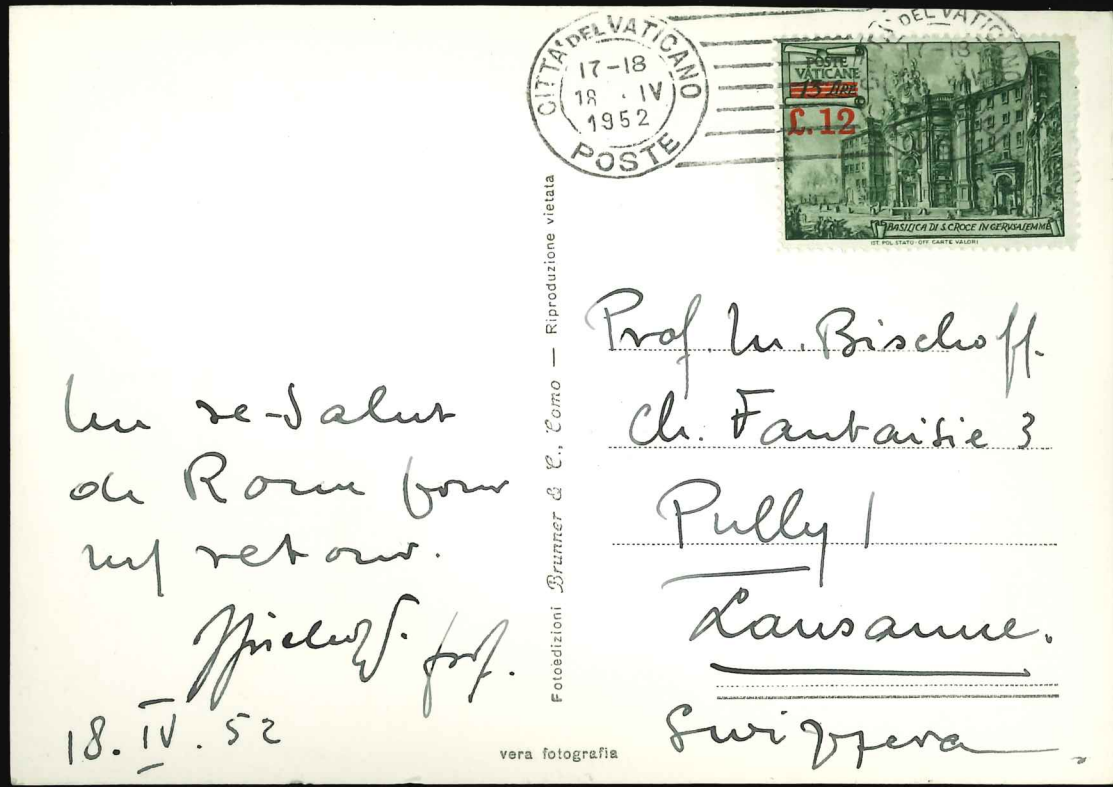 CITTA' DEL VATICANO
17-18
18 . IV
1952
POSTE
DEL VATICANO
17-18
POSTE
VATICANE
13 LIRE
L. 12
BASILICA DI S. CROCE IN GERUSALEMME
IST. POL. STATO - OFF. CARTE VALORI
Un re-salut
de Rome pour
retour.
prof.
18. IV. 52
Fotoedizioni Brunner & C., Como — Riproduzione vietata
vera fotografia
Prof. M. Bischoff.
Ch. Fantaisie 3
Pully /
Lausanne.
Svizzera